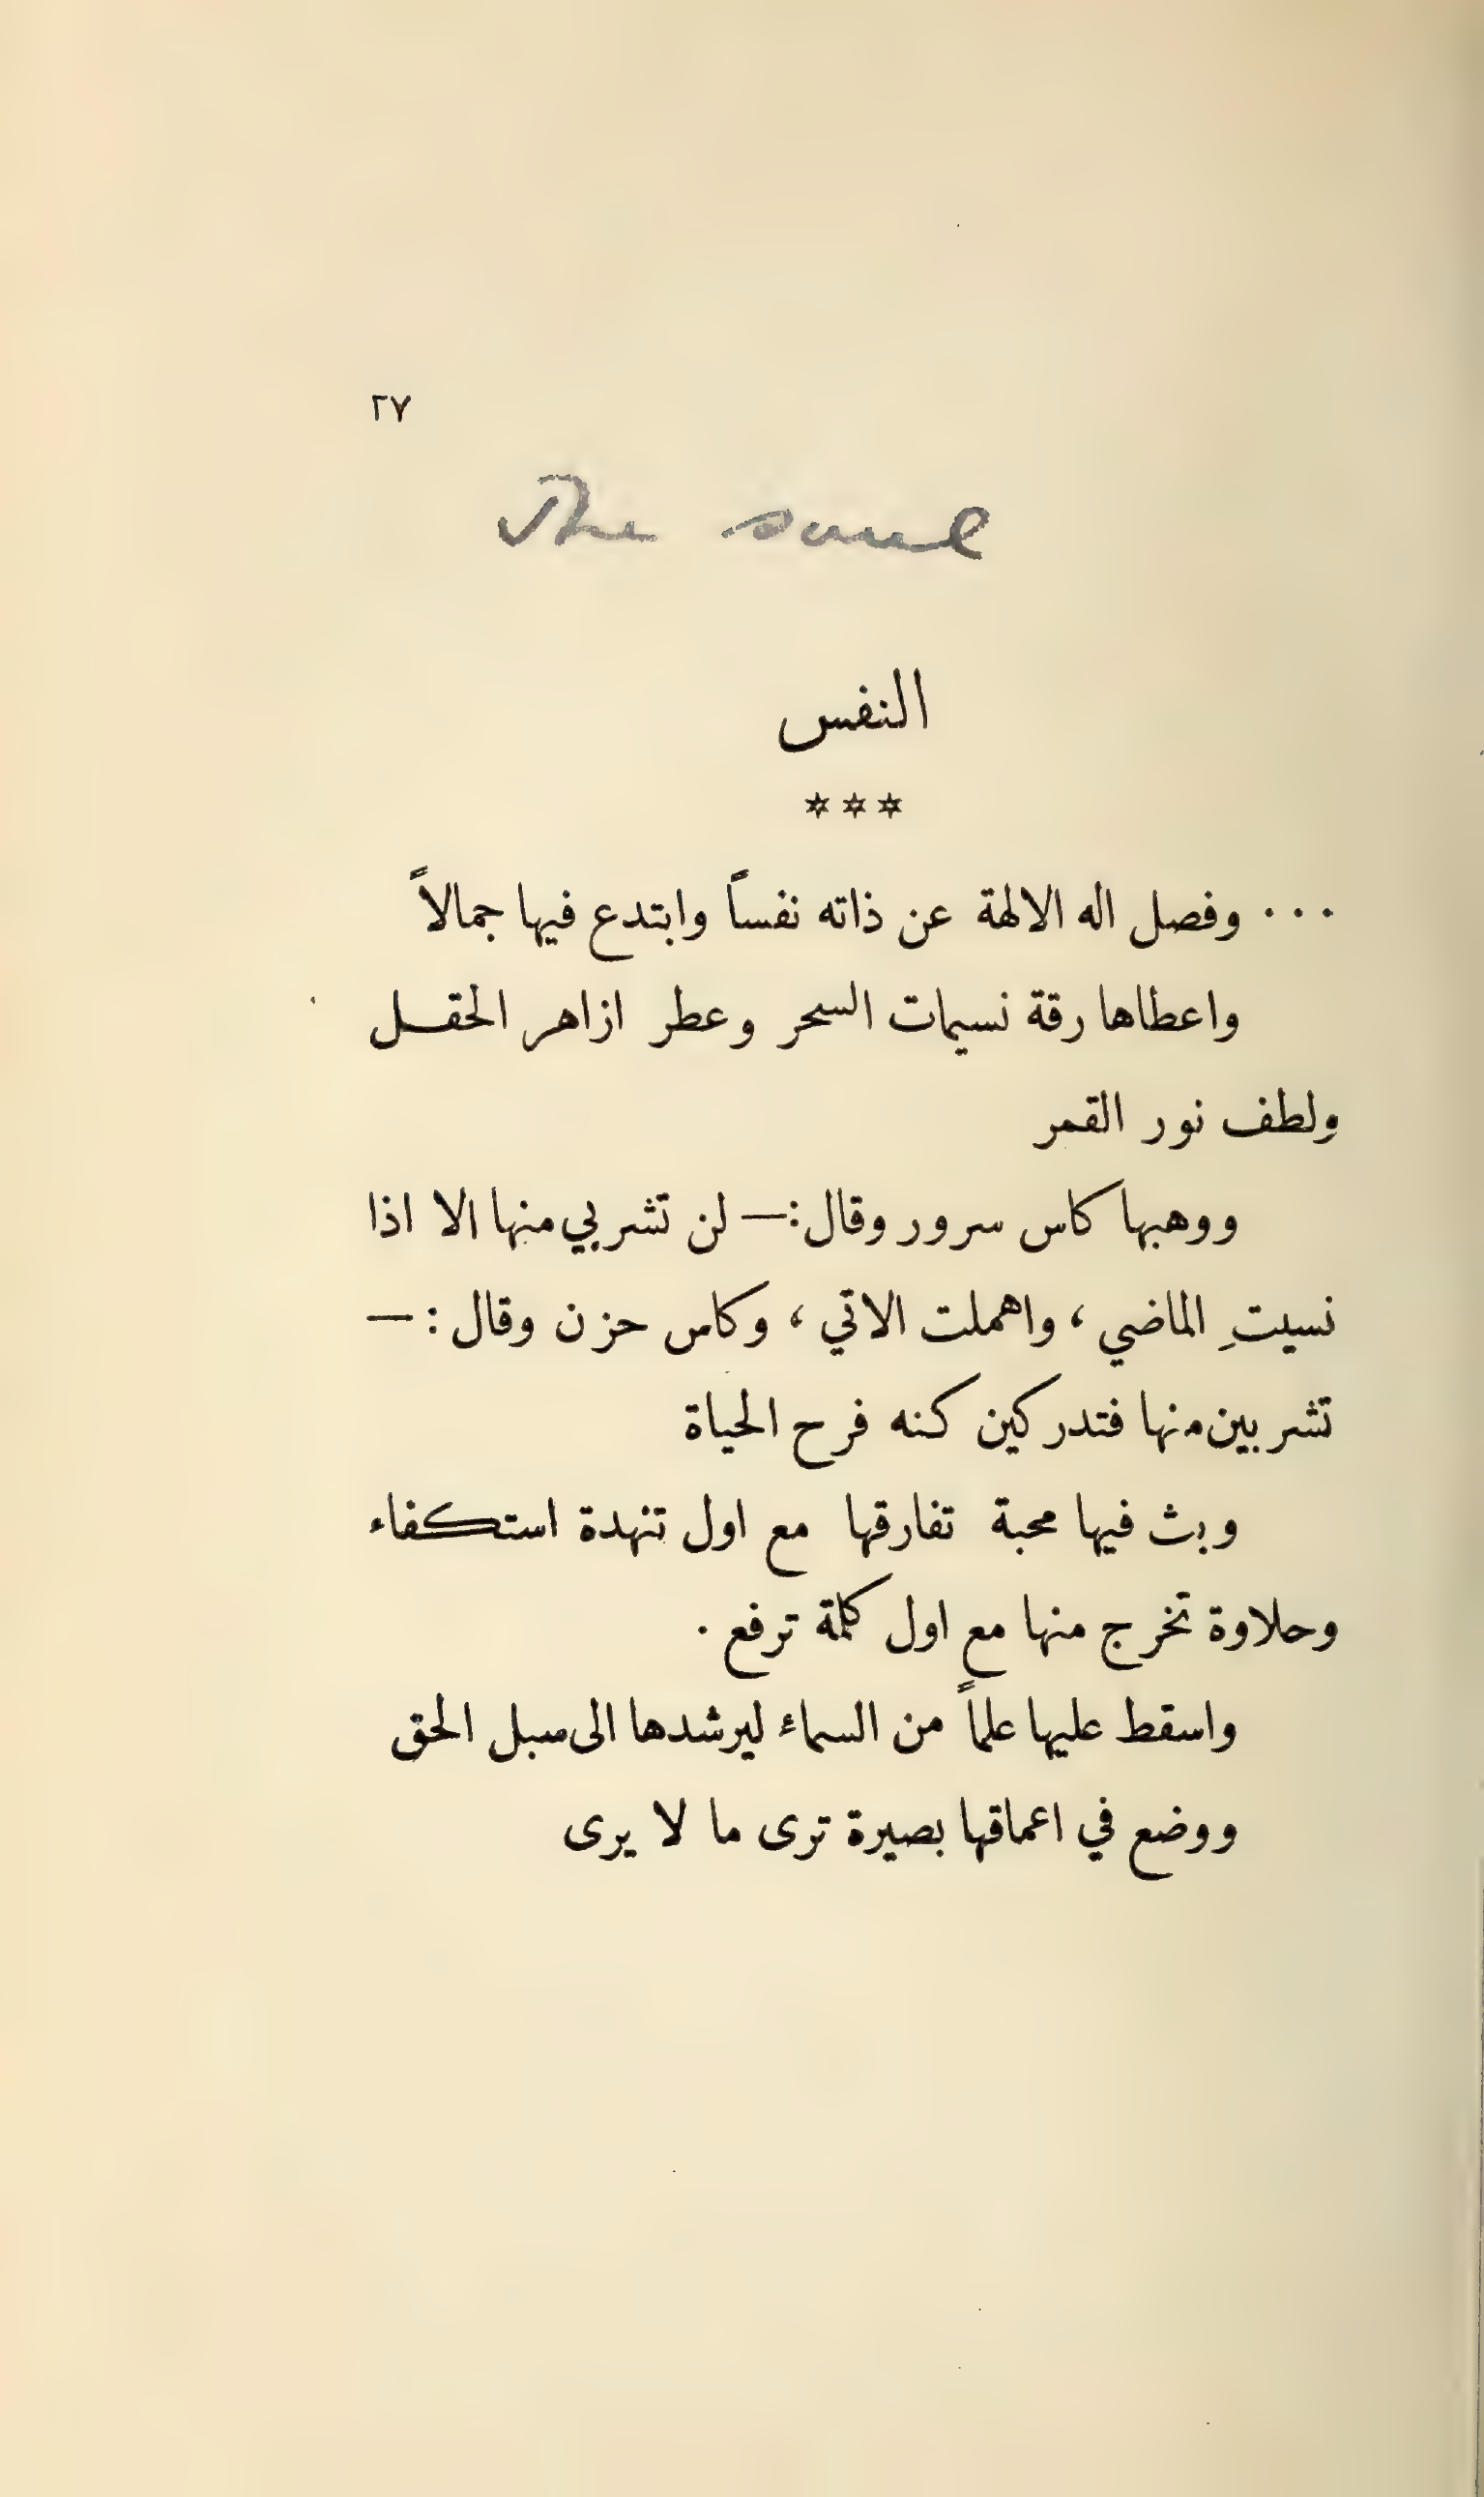 ٢٧
The soul
النفس
***
... وفصل اله الالهة عن ذاته نفساً وابتدع فيها جمالاً
واعطاها رقة نسيمات السحر وعطر ازاهر الحقل
ولطف نور القمر
ووهبها كاس سرور وقال:— لن تشربي منها الا اذا
نسيتِ الماضي، واهملت الاتي، وكاس حزن وقال:—
تشربين منها فتدركين كنه فرح الحياة
وبث فيها محبة تفارقها مع اول تنهدة استكفاء
وحلاوة تخرج منها مع اول كلمة ترفع.
واسقط عليها علماً من السماء ليرشدها الى سبل الحق
ووضع في اعماقها بصيرة ترى ما لا يرى